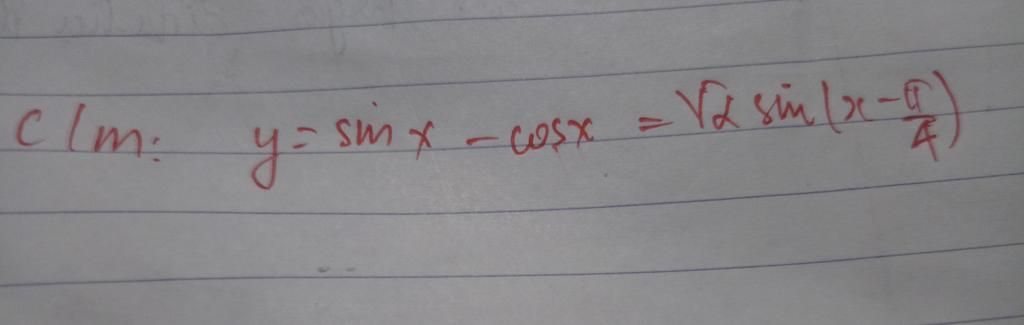 C/m: y = sin x - cos x = √2 sin(x - π/4)